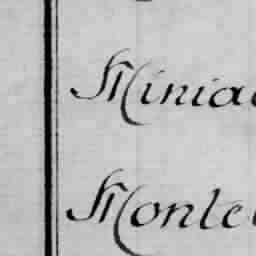 Minia
Monte